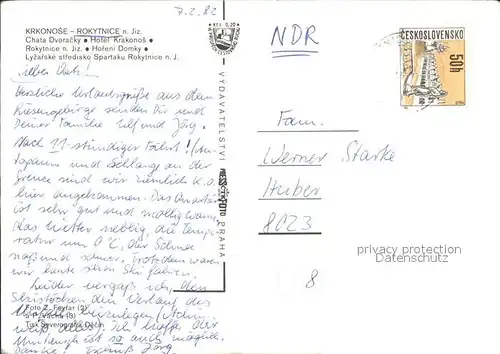 7.2.82
KRKONOŠE – ROKYTNICE n. Jiz.
Chata Dvoračky • Hotel Krakonoš •
Rokytnice n. Jiz. • Hoření Domky •
Lyžařské středisko Spartaku Rokytnice n. J.
KčS 0,20
Herzliche Urlaubsgrüße aus dem
Riesengebirge senden Dir und
Deiner Familie und Jörg.
Nach 11-stündiger Fahrt!
und Schlange an der
Grenze sind wir ziemlich k.o.
hier angekommen. Das Quartier
ist sehr gut und mollig warm.
Das Wetter neblig, die Tempe-
ratur um 0°C, der Schnee
naß und schwer. Trotzdem waren
wir heute schon Ski fahren.
Leider vergaß ich, den
Skistöcken den
ich hoffe, der
Umtausch ist so auch möglich.
Danke! Jörg
Foto Z. Feyfar (2)
a P. Vácha (3)
Tisk Severografia Děčín
VYDAVATELSTVÍ
PRESSFOTO
PRAHA
NDR
ČESKOSLOVENSKO
50h
Fam.
Werner Starke
Huber
8023
8
privacy protection
Datenschutz